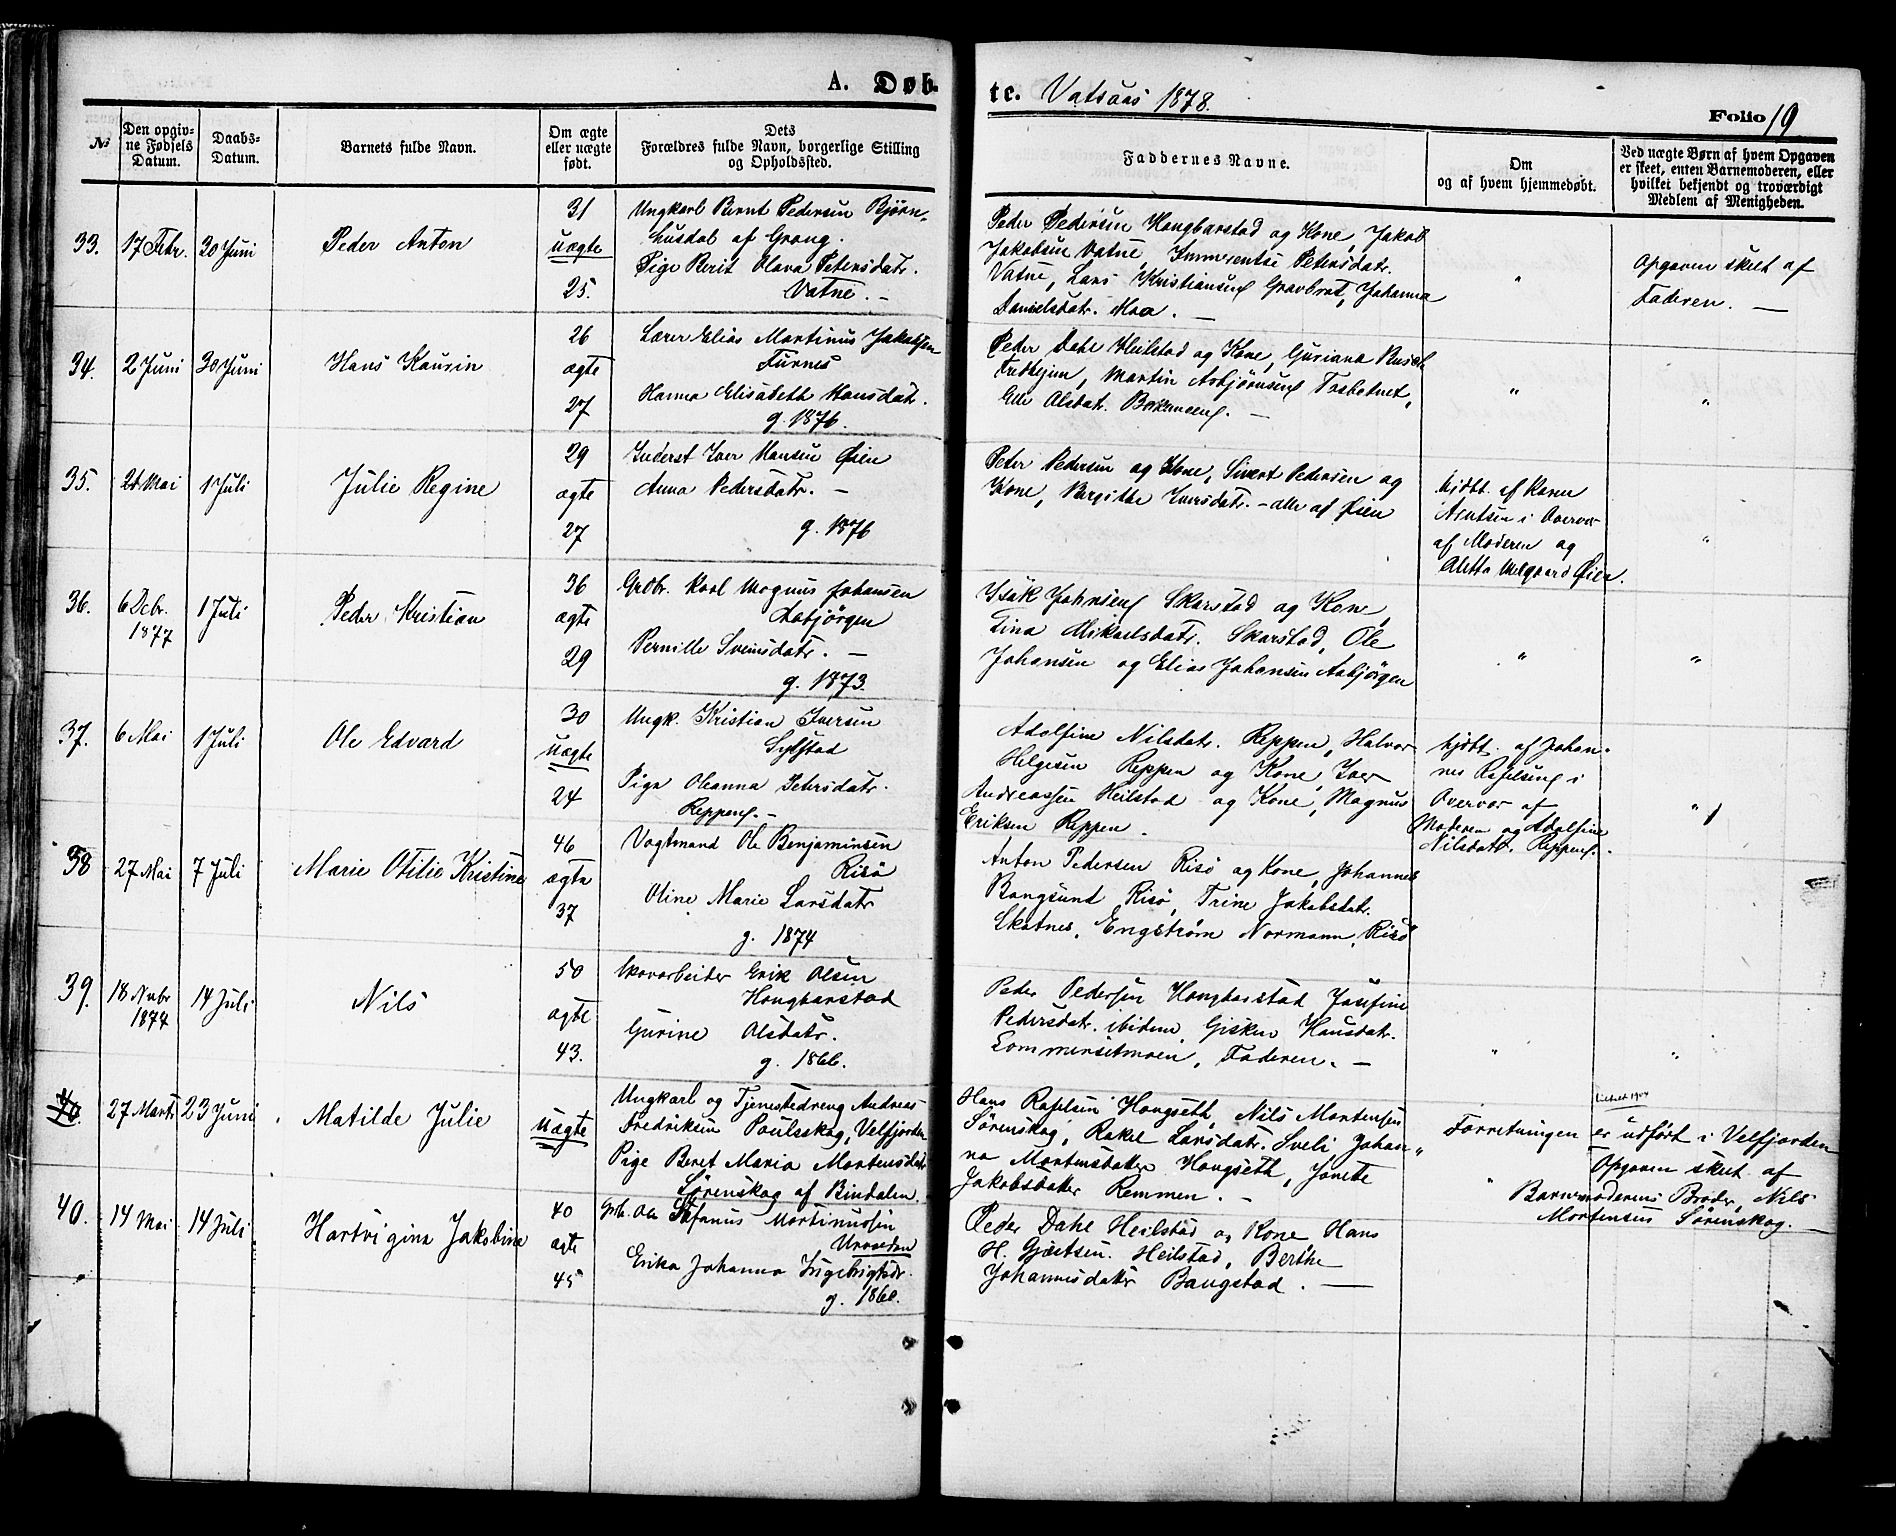 A. Døb-
te. Vatsaas 1878.
Folio 19
№
Den opgiv-
ne Fødsels
Datum.
Daabs-
Datum.
Barnets fulde Navn.
Om ægte
eller uægte
født.
Dets
Forældres fulde Navn, borgerlige Stilling
og Opholdssted.
Faddernes Navne.
Om
og af hvem hjemmedøbt.
Ved uægte Børn af hvem Opgaven
er skeet, enten Barnemoderen, eller
hvilket bekjendt og troværdigt
Medlem af Menigheden.
33. 17 Febr. 30 Juni Peder Anton
31
uægte
25.
Ungkarl Bernt Pedersen Bjørn-
husdal af Grong.
Pige Berit Olava Petersdatr.
Vatne. —
Peder Pedersen Hongbarstad og Kone, Jakob
Jakobsen Vatne, Petersdatr.
Vatne, Lars Kristiansen Gravbrøt, Johanna
Danielsdatr. Moa. —
"
Opgaven skeet af
Faderen. —
34. 2 Juni 30 Juni Hans Kaurin
26
ægte
27
Lærer Elias Martinus Jakobsen
Furnes
Hanna Elisabeth Hansdatr.
g. 1876.
Peder Dahl Heilstad og Kone, Guriana
Martin Asbjørnsen Tosbotnet,
Elle Olsdatr. —
"
"
35. 28 Mai 1 Juli Julie Regine
29
ægte
27
Inderst Iver Hansen Øien
Anna Pedersdatr. —
g. 1876
Peter Pedersen og Kone, Sivert Pedersen og
Kone, Bergitte Iversdatr. – alle af Øien
hjdbt. af Karen
Arntsen i Overvær
af Moderen og
Aletta Melgaard Øien.
"
36. 6 Dcbr.
1877
1 Juli Peder Kristian
36
ægte
29
Grdbr. Karl Magnus Johansen
Aabjörgen
Pernille Svensdatr. —
g. 1873.
Isak Johnsen Skarstad og Kone,
Lina Mikaelsdatr. Skarstad, Ole
Johansen og Elias Johansen Aabjörgen
"
"
37. 6 Mai 1 Juli Ole Edvard
30
uægte
24
Ungk. Kristian Iversen
Sylstad
Pige Oleanna Petersdatr.
Reppen. –
Adolfine Nilsdatr. Reppen, Halvor
Helgesen Reppen og Kone, Iver
Andreassen Heilstad og Kone, Magnus
Eriksen Reppen.
hjdbt. af Johan-
nes Rafelsen i
Overvær af
Moderen og Adolfine
Nilsdatr. Reppen.
"
38 27 Mai 7 Juli Marie Otilie Kristine
46
ægte
37
Vogtmand Ole Benjaminsen
Risö
Oline Marie Larsdatr
g. 1874
Anton Pedersen Risö og Kone, Johannes
Bangsund Risö, Trine Jakobsdatr.
Skatnes, Engström Normann, Risö
39. 18 Nvbr
1877
14 Juli Nils
50
ægte
43.
Skovarbeider Erik Olsen
Hongbarstad
Gurine Olsdatr.
g. 1866.
Peder Pedersen Hongbarstad Josefine
Pedersdatr. ibidem, Gisken Hansdatr.
Lommersetmoen, Faderen. —
"
"
40. 27 Marts 23 Juni Matilde Julie
uægte
Ungkarl og Tjenestedreng Andreas
Fredriksen Poulsskog, Velfjorden
Pige Beret Maria Mortensdatr
Sørenskog af Bindalen.
Hans Rafelsen Hongseth, Nils Mortensen
Sørenskog, Rakel Larsdatr. Sveli Johan-
na Mortensdatter Hongseth, Jonette
Jakobsdatter Remmen. –
"
Forretningen er udført i Velfjorden
Opgaven skeet af
Barnemoderens Broder, Nils
Mortensen Sørenskog. —
40. 14 Mai 14 Juli Hartvigine Jakobine
40
ægte
45
Grdb. Ole Stefanus Martinussen
Urvolden
Erika Johanna Ingebrigtsdr.
g. 1860.
Peder Dahl Heilstad og Kone Hans
H. Gjæstsen. Heilstad, Berthe
Johannesdatter Bangstad. —